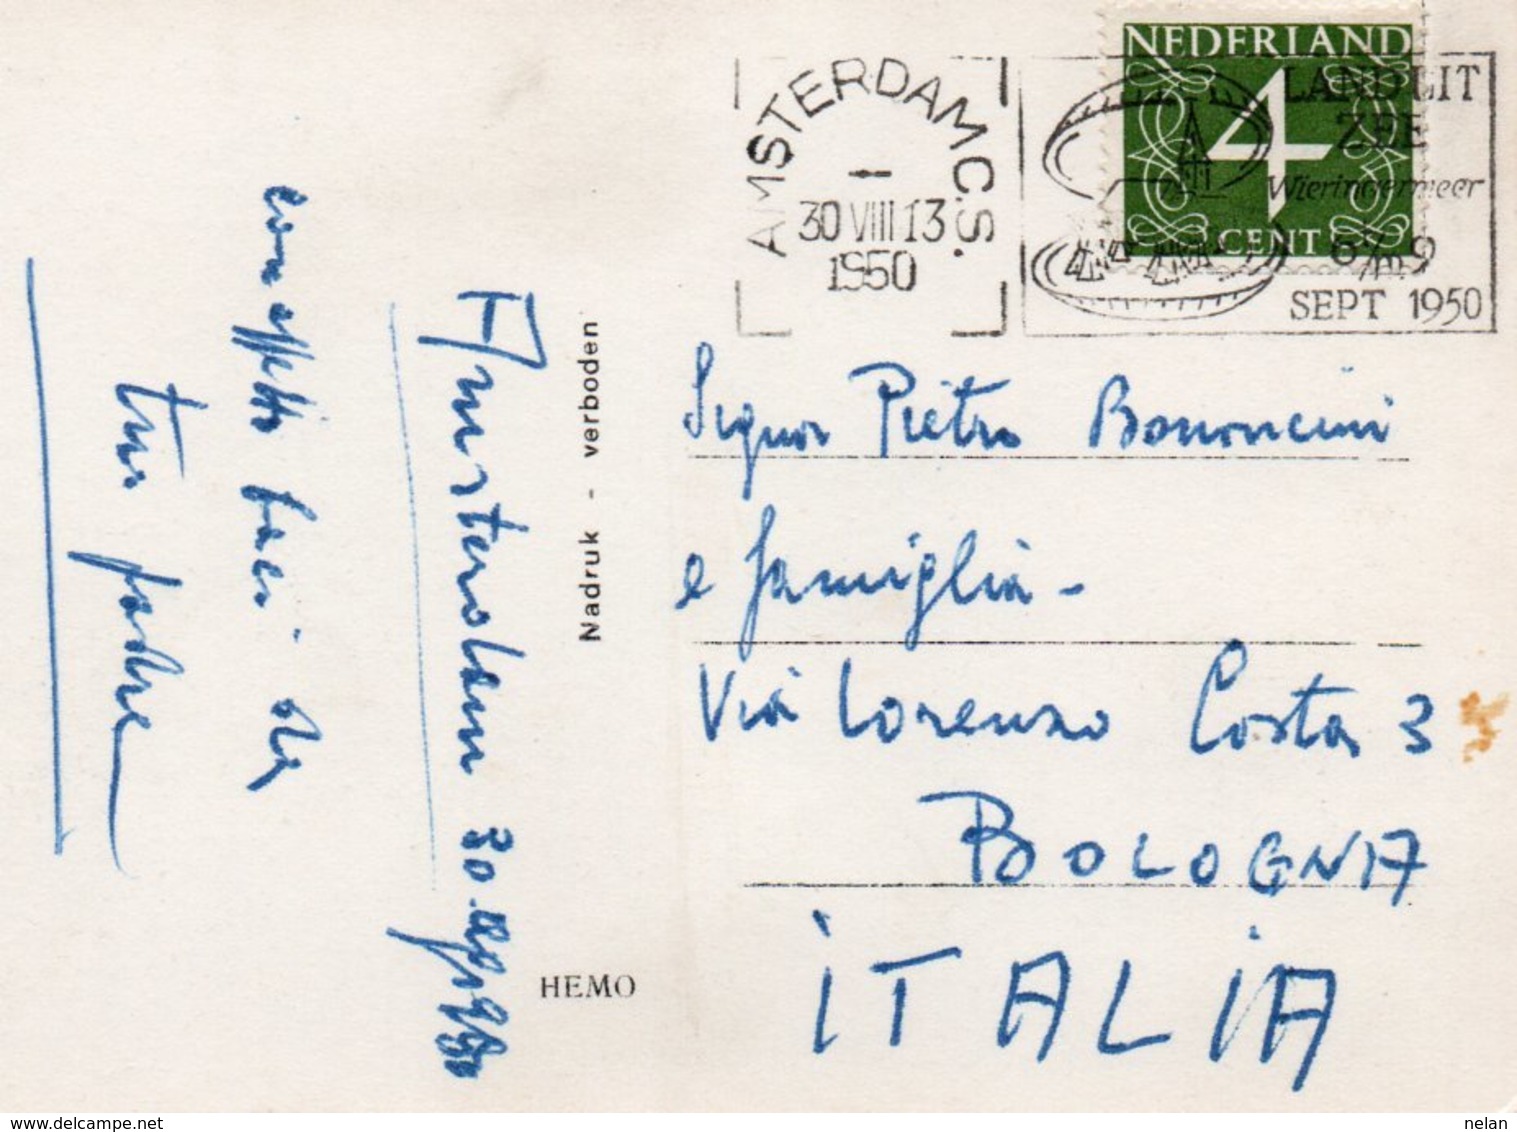 NEDERLAND
4
CENT
AMSTERDAM C.S.
30 VIII 13
1950
LAND UIT
ZEE
Wieringermeer
6 t/m 9
SEPT 1950
Signor Pietro Bononcini
e famiglia -
Via Lorenzo Costa 3
BOLOGNA
iTALiA
Nadruk - verboden
HEMO
Amsterdam 30
con affetto baci da
tuo padre
delcampe.net
nelan